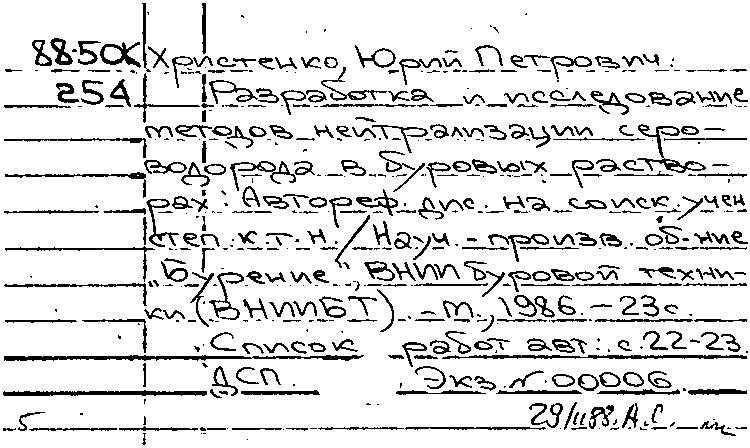 88-50К Христенко, Юрий Петрович.
254 Разработка и исследование
методов нейтрализации серо-
водорода в буровых раство-
рах: Автореф. дис. на соиск. учен
степ. к.т.н. / Науч.-произв. об-ние
"Бурение", ВНИИ буровой техни-
ки (ВНИИБТ). - М., 1986. - 23 с.
Список работ авт.: с. 22-23.
ДСП. Экз. № 00006.
5 29/II 88. А.С.